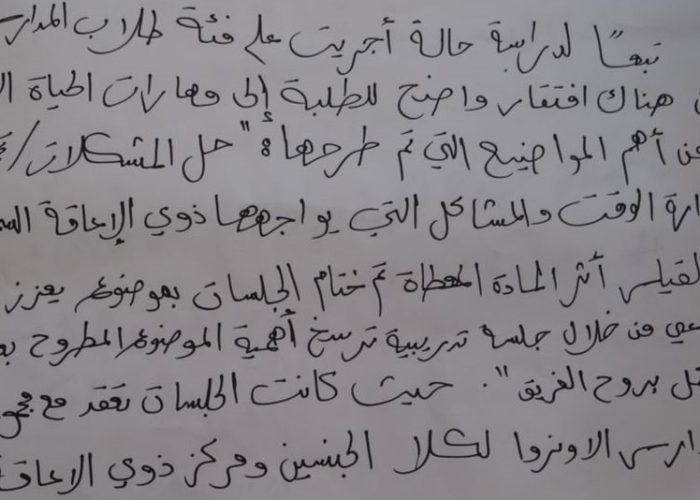 تبعًا لدراسة حالة أجريت على فئة طلاب المدارس
هناك افتقار واضح للطلبة إلى مهارات الحياة
من أهم المواضيع التي تم طرحها: "حل المشكلات/
الوقت والمشاكل التي يواجهها ذوي الإعاقة
لقياس أثر المادة المعطاة تم ختام الجلسات بموضوع يعزز
من خلال جلسة تدريبية ترسخ أهمية الموضوع المطروح
بروح الفريق". حيث كانت الجلسات تعقد مع
الاونروا لكلا الجنسين ومركز ذوي الإعاقة